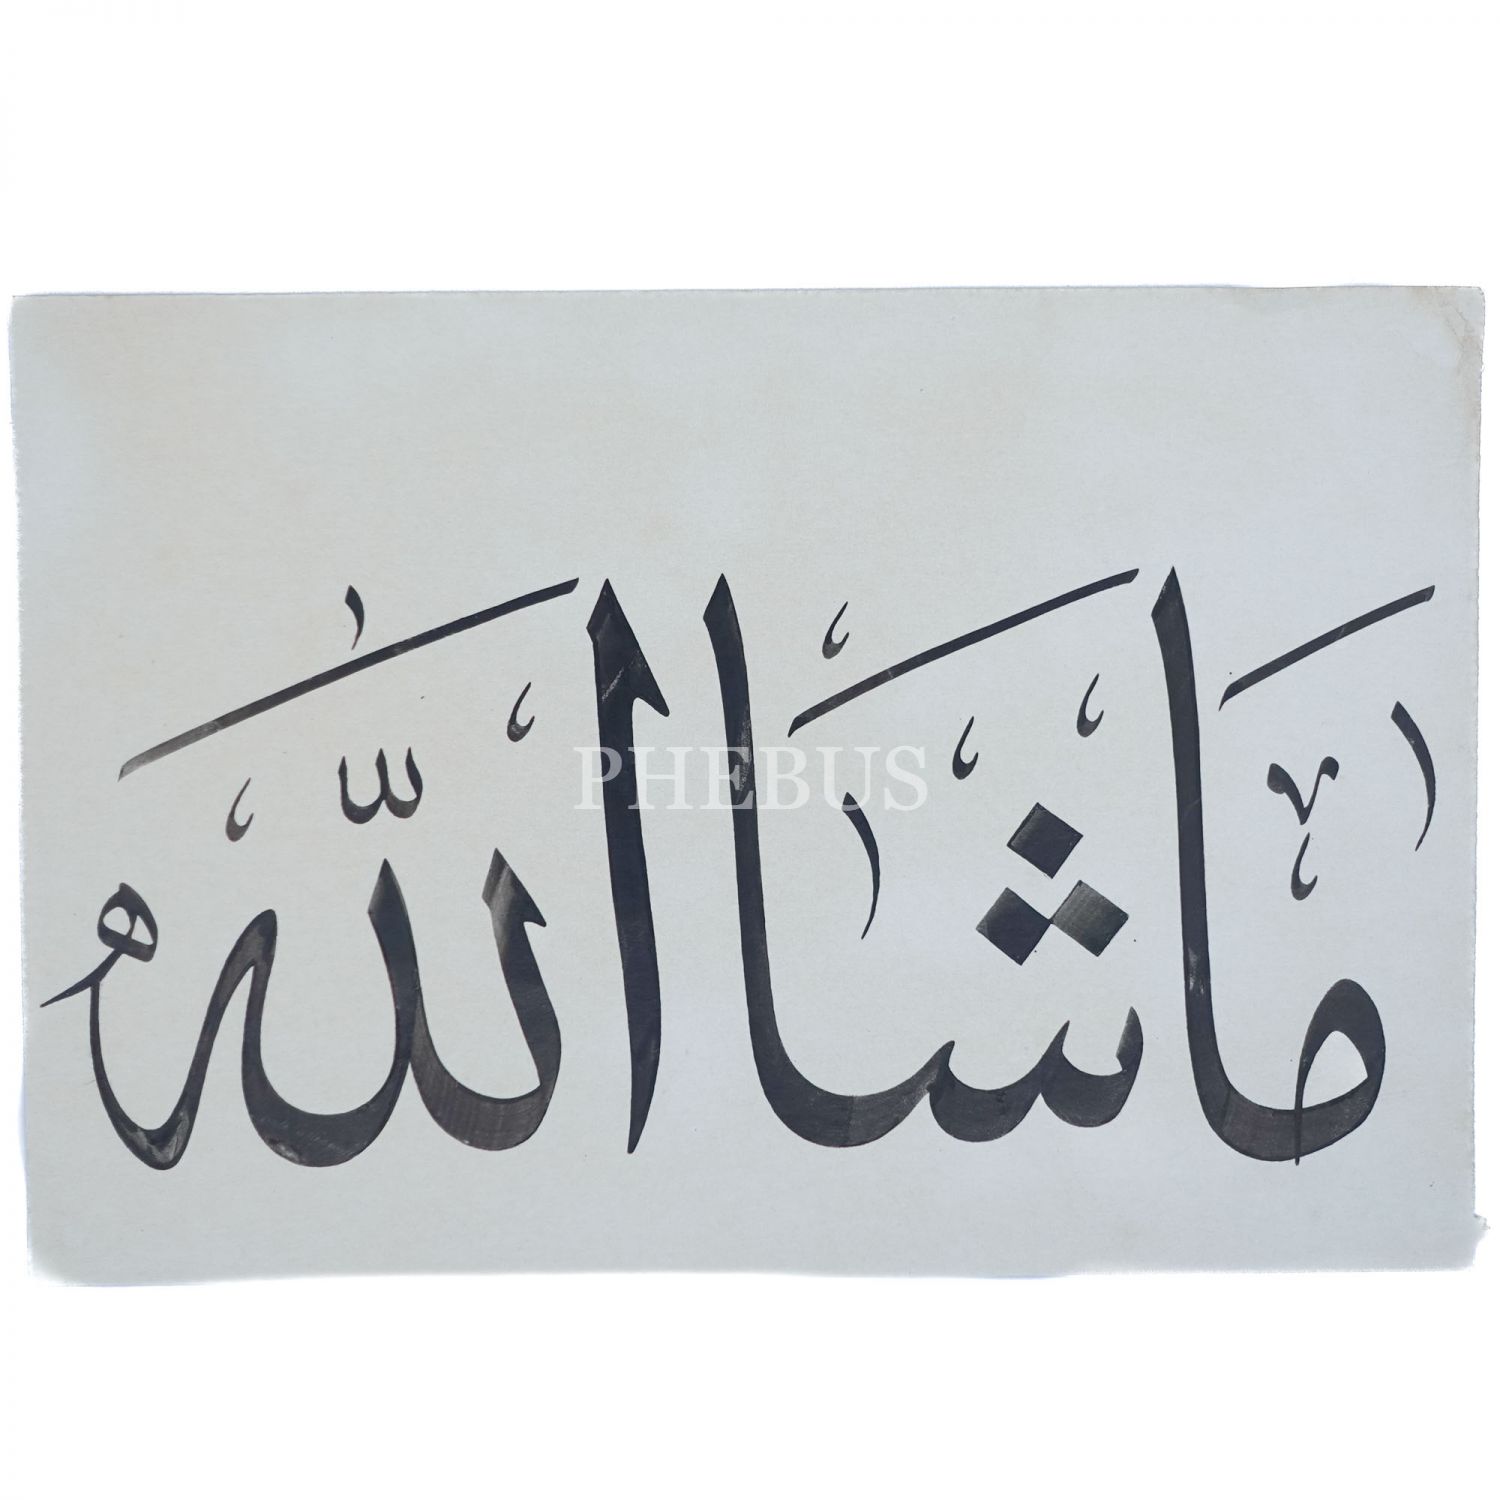 ما شا الله
PHEBUS